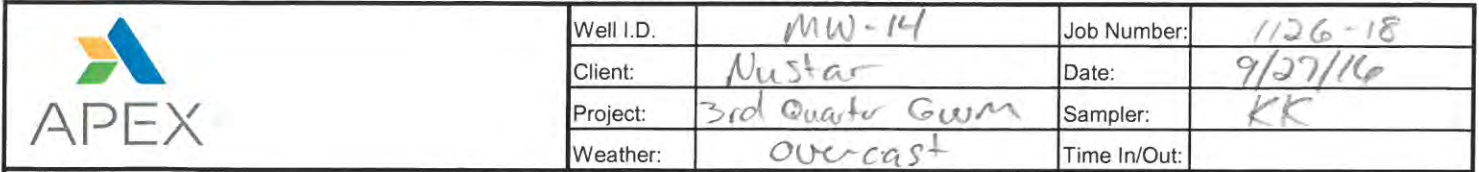 Well I.D. MW-14 Job Number: 1126-18
Client: NuStar Date: 9/27/16
Project: 3rd Quarter GWM Sampler: KK
Weather: Overcast Time In/Out:
APEX